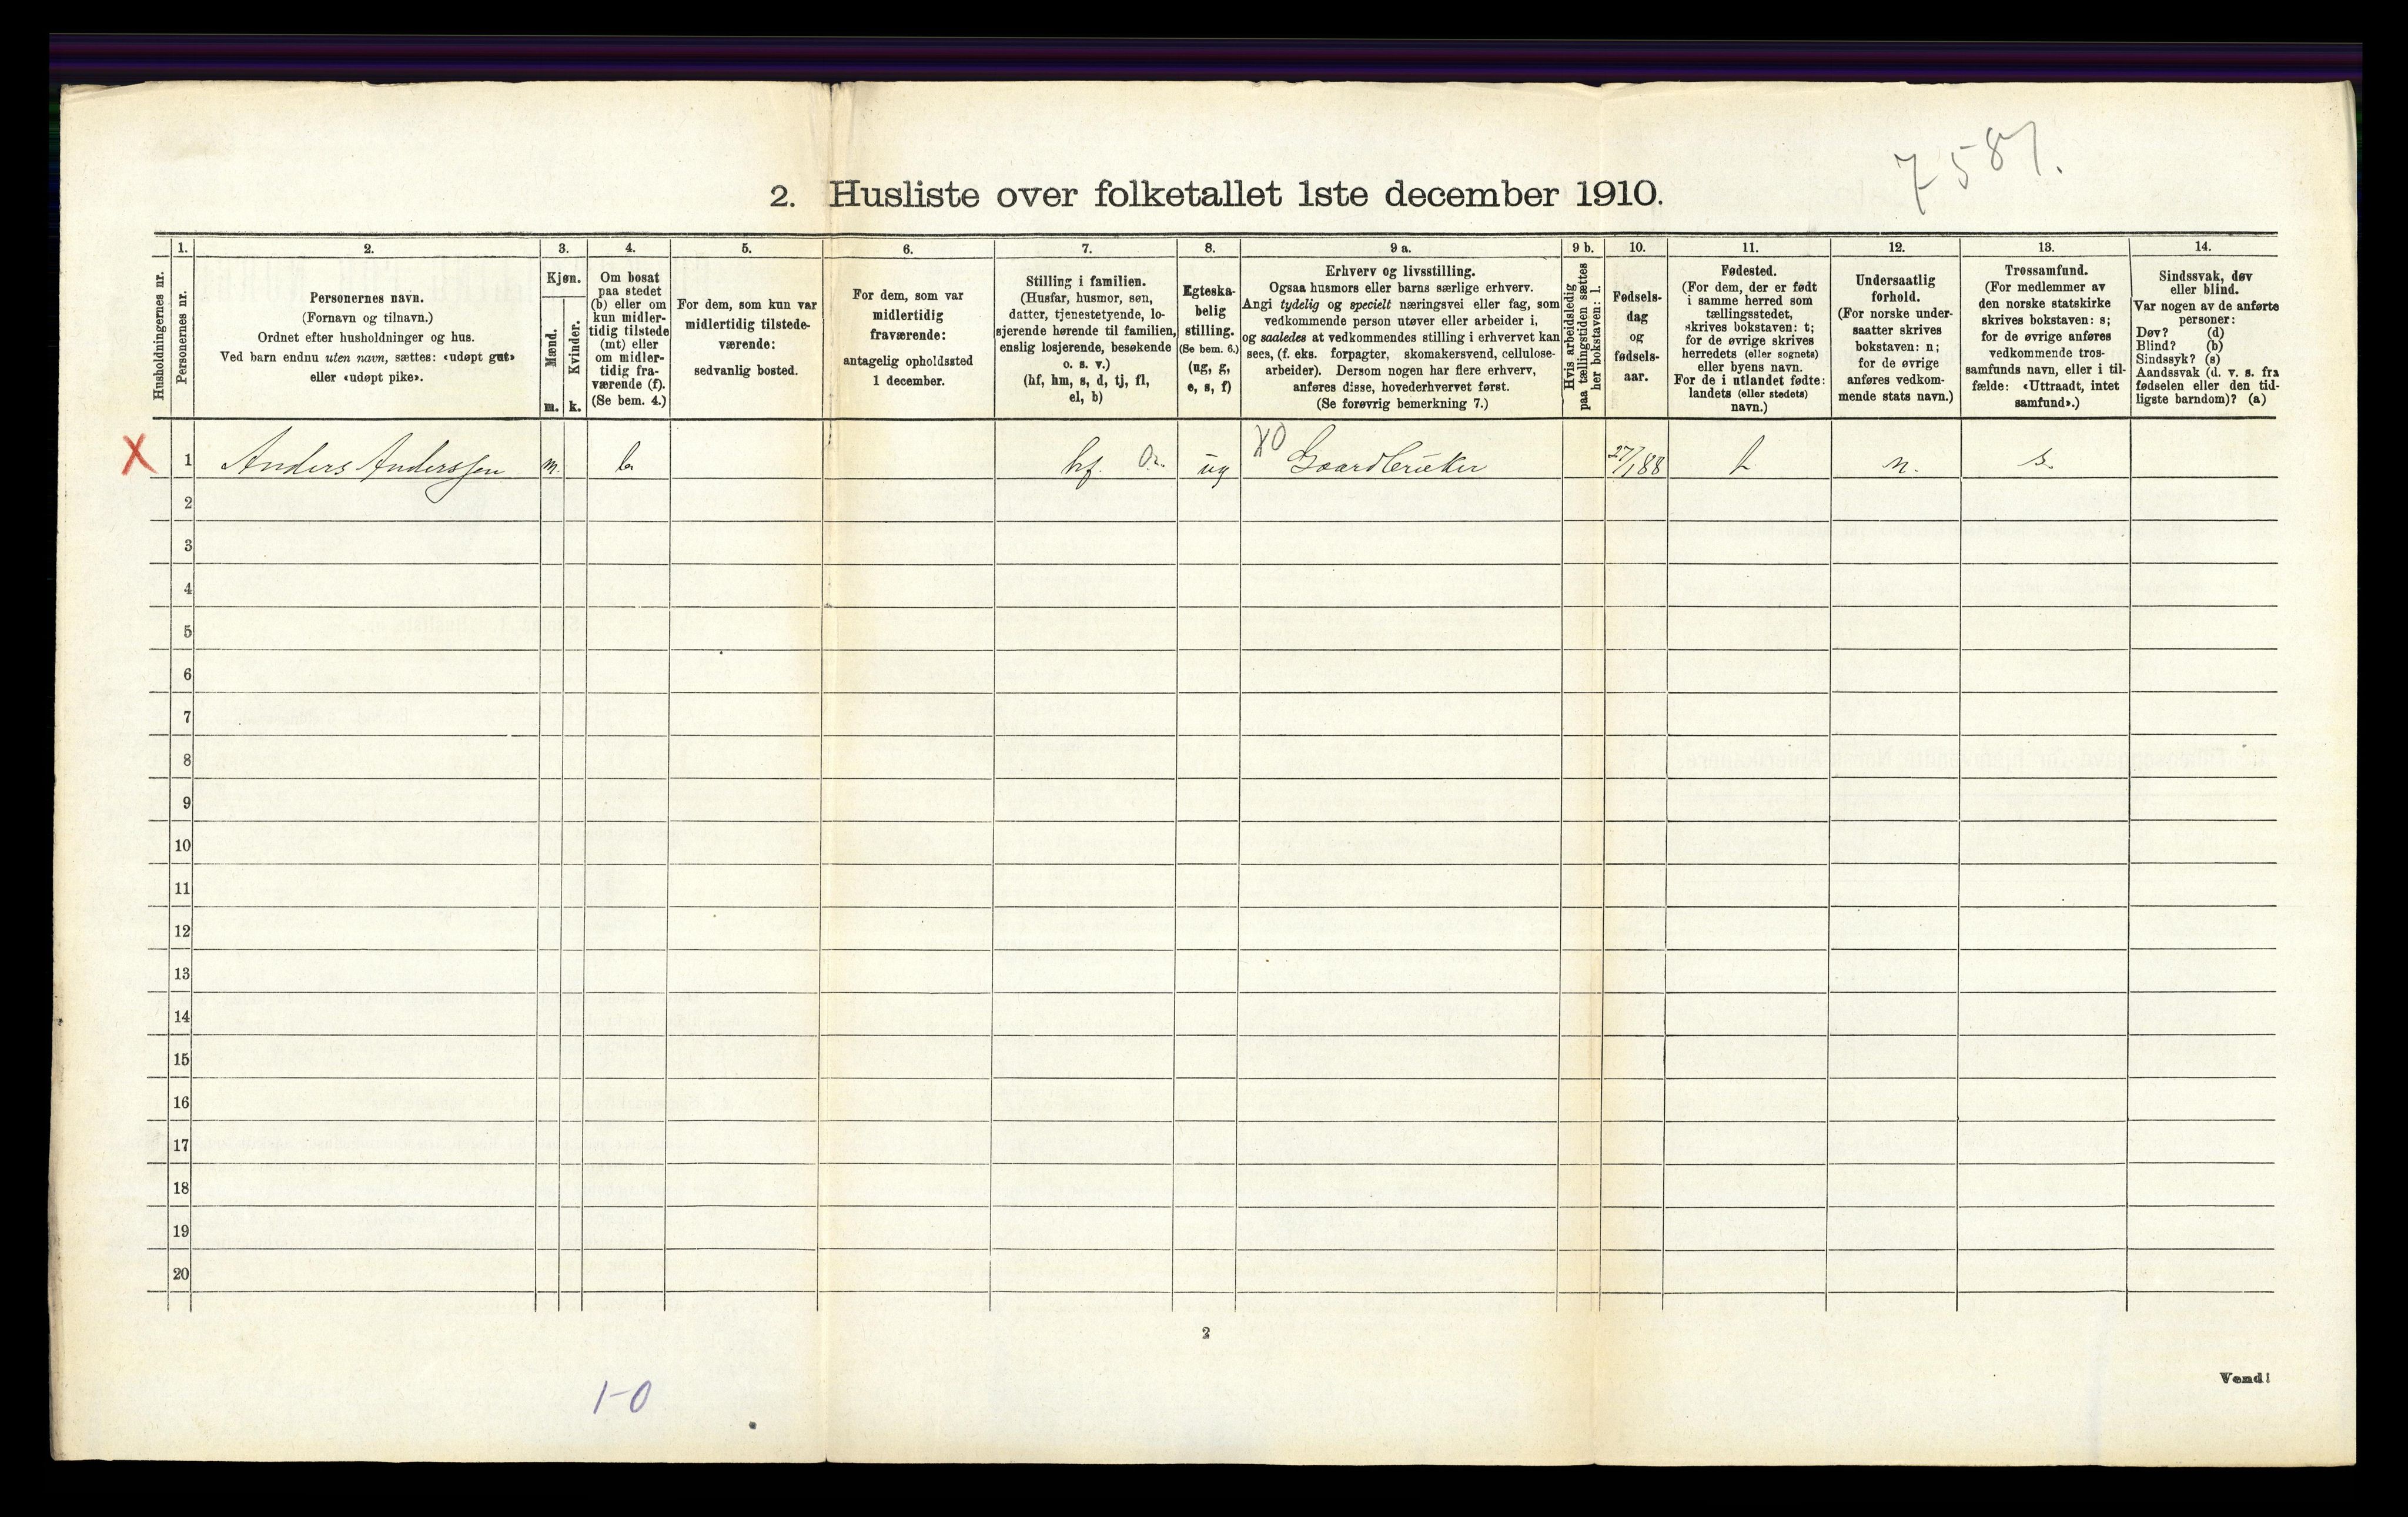 7587.
2. Husliste over folketallet 1ste december 1910.
Husholdningernes nr.
1.
Personernes nr.
2.
Personernes navn.
(Fornavn og tilnavn.)
Ordnet efter husholdninger og hus.
Ved barn endnu uten navn, sættes: «udøpt gut»
eller «udøpt pike».
3.
Kjøn.
Mænd.
m.
Kvinder.
k.
4.
Om bosat
paa stedet
(b) eller om
kun midler-
tidig tilstede
(mt) eller
om midler-
tidig fra-
værende (f).
(Se bem. 4.)
5.
For dem, som kun var
midlertidig tilstede-
værende:
sedvanlig bosted.
6.
For dem, som var
midlertidig
fraværende:
antagelig opholdssted
1 december.
7.
Stilling i familien.
(Husfar, husmor, søn,
datter, tjenestetyende, lo-
sjerende hørende til familien,
enslig losjerende, besøkende
o. s. v.)
(hf, hm, s, d, tj, fl,
el, b)
8.
Egteska-
belig
stilling.
(Se bem. 6.)
(ug, g,
e, s, f)
9 a.
Erhverv og livsstilling.
Ogsaa husmors eller barns særlige erhverv.
Angi tydelig og specielt næringsvei eller fag, som
vedkommende person utøver eller arbeider i,
og saaledes at vedkommendes stilling i erhvervet kan
sees, (f. eks. forpagter, skomakersvend, cellulose-
arbeider). Dersom nogen har flere erhverv,
anføres disse, hovederhvervet først.
(Se forøvrig bemerkning 7.)
9 b.
Hvis arbeidsledig
paa tællingstiden sættes
her bokstaven: l.
10.
Fødsels-
dag
og
fødsels-
aar.
11.
Fødested.
(For dem, der er født
i samme herred som
tællingsstedet,
skrives bokstaven: t;
for de øvrige skrives
herredets (eller sognets)
eller byens navn.
For de i utlandet fødte:
landets (eller stedets)
navn.)
12.
Undersaatlig
forhold.
(For norske under-
saatter skrives
bokstaven: n;
for de øvrige
anføres vedkom-
mende stats navn.)
13.
Trossamfund.
(For medlemmer av
den norske statskirke
skrives bokstaven: s;
for de øvrige anføres
vedkommende tros-
samfunds navn, eller i til-
fælde: «Uttraadt, intet
samfund».)
14.
Sindssvak, døv
eller blind.
Var nogen av de anførte
personer:
Døv? (d)
Blind? (b)
Sindssyk? (s)
Aandssvak (d. v. s. fra
fødselen eller den tid-
ligste barndom)? (a)
X 1 Anders Anderssen m. b hf. ug X0 Gaardbruker 27/1 88 t n. s.
2
3
4
5
6
7
8
9
10
11
12
13
14
15
16
17
18
19
20
2
Vend!
1-0